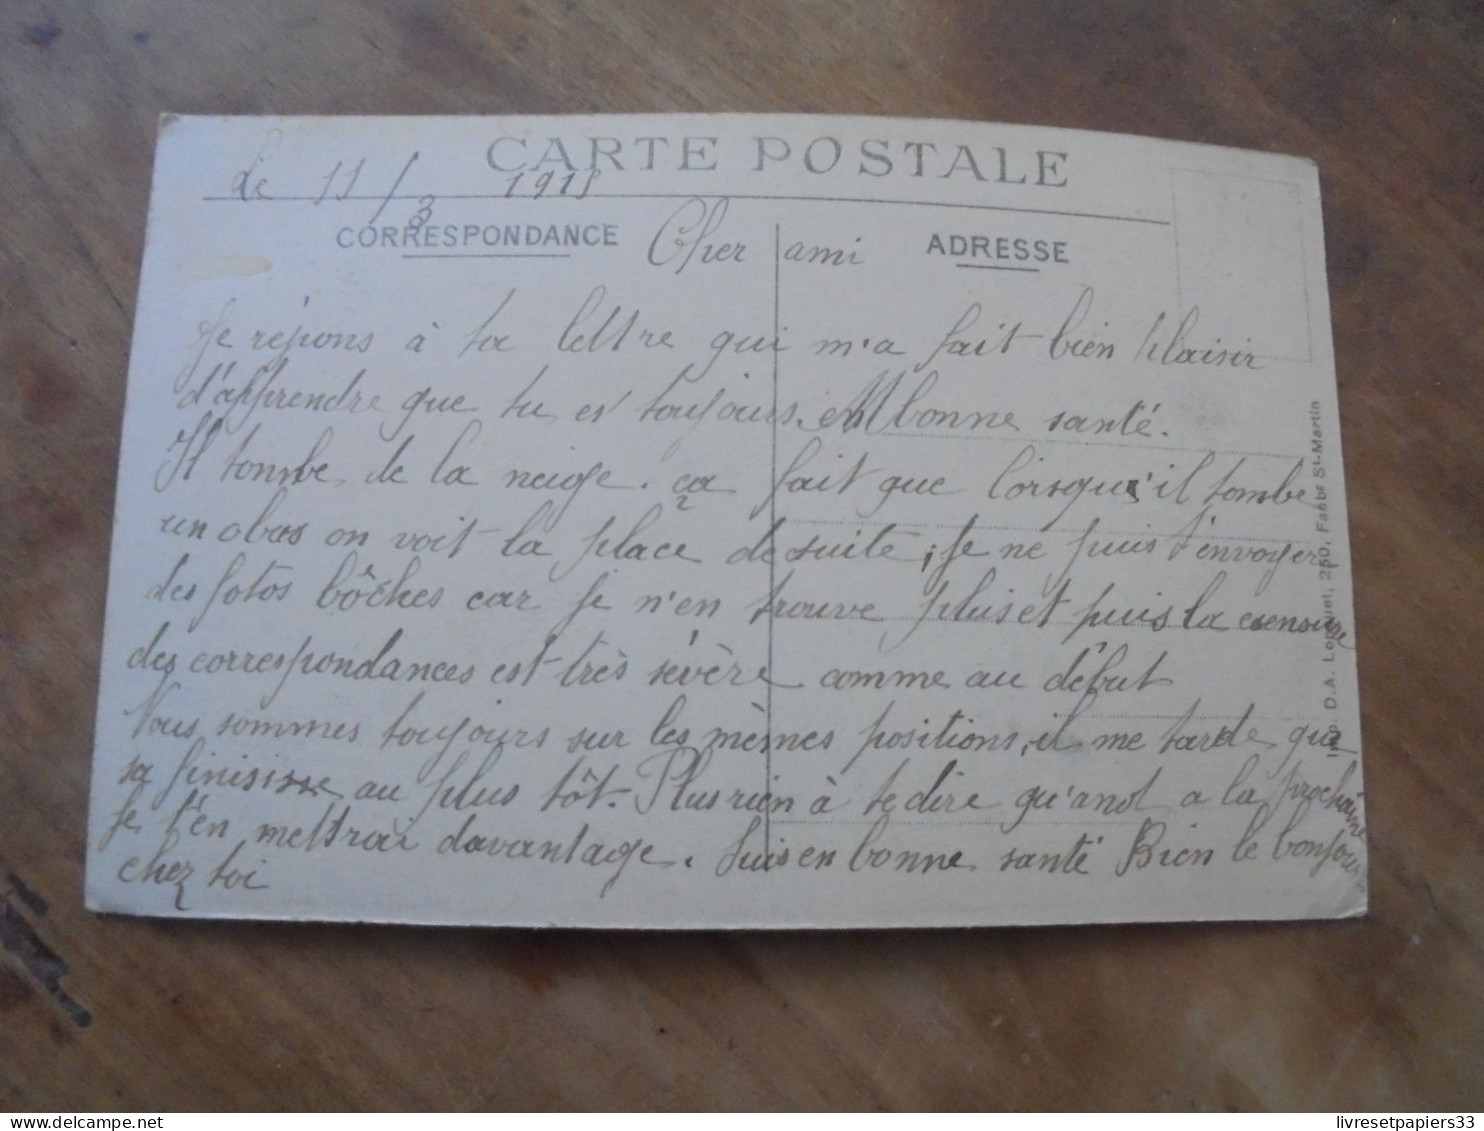 CARTE POSTALE
Le 11/3 1915
CORRESPONDANCE
ADRESSE
Cher ami
Je répons à ta lettre qui m'a fait bien plaisir
d'apprendre que tu es toujours en bonne santé.
Il tombe de la neige. ça fait que lorsqu'il tombe
un obus on voit la place de suite; Je ne puis t'envoyer
des fotos bôches car je n'en trouve plus et puis la censure
des correspondances est très sévère comme au début
Nous sommes toujours sur les mêmes positions, il me tarde que
sa finisse au plus tôt. Plus rien à te dire qu'anot a la prochaine
Je t'en mettrai davantage. Suis en bonne santé Bien le bonjour
chez toi
Imp. D.A. Longuet, 250, Faubg St-Martin
livresetpapiers33